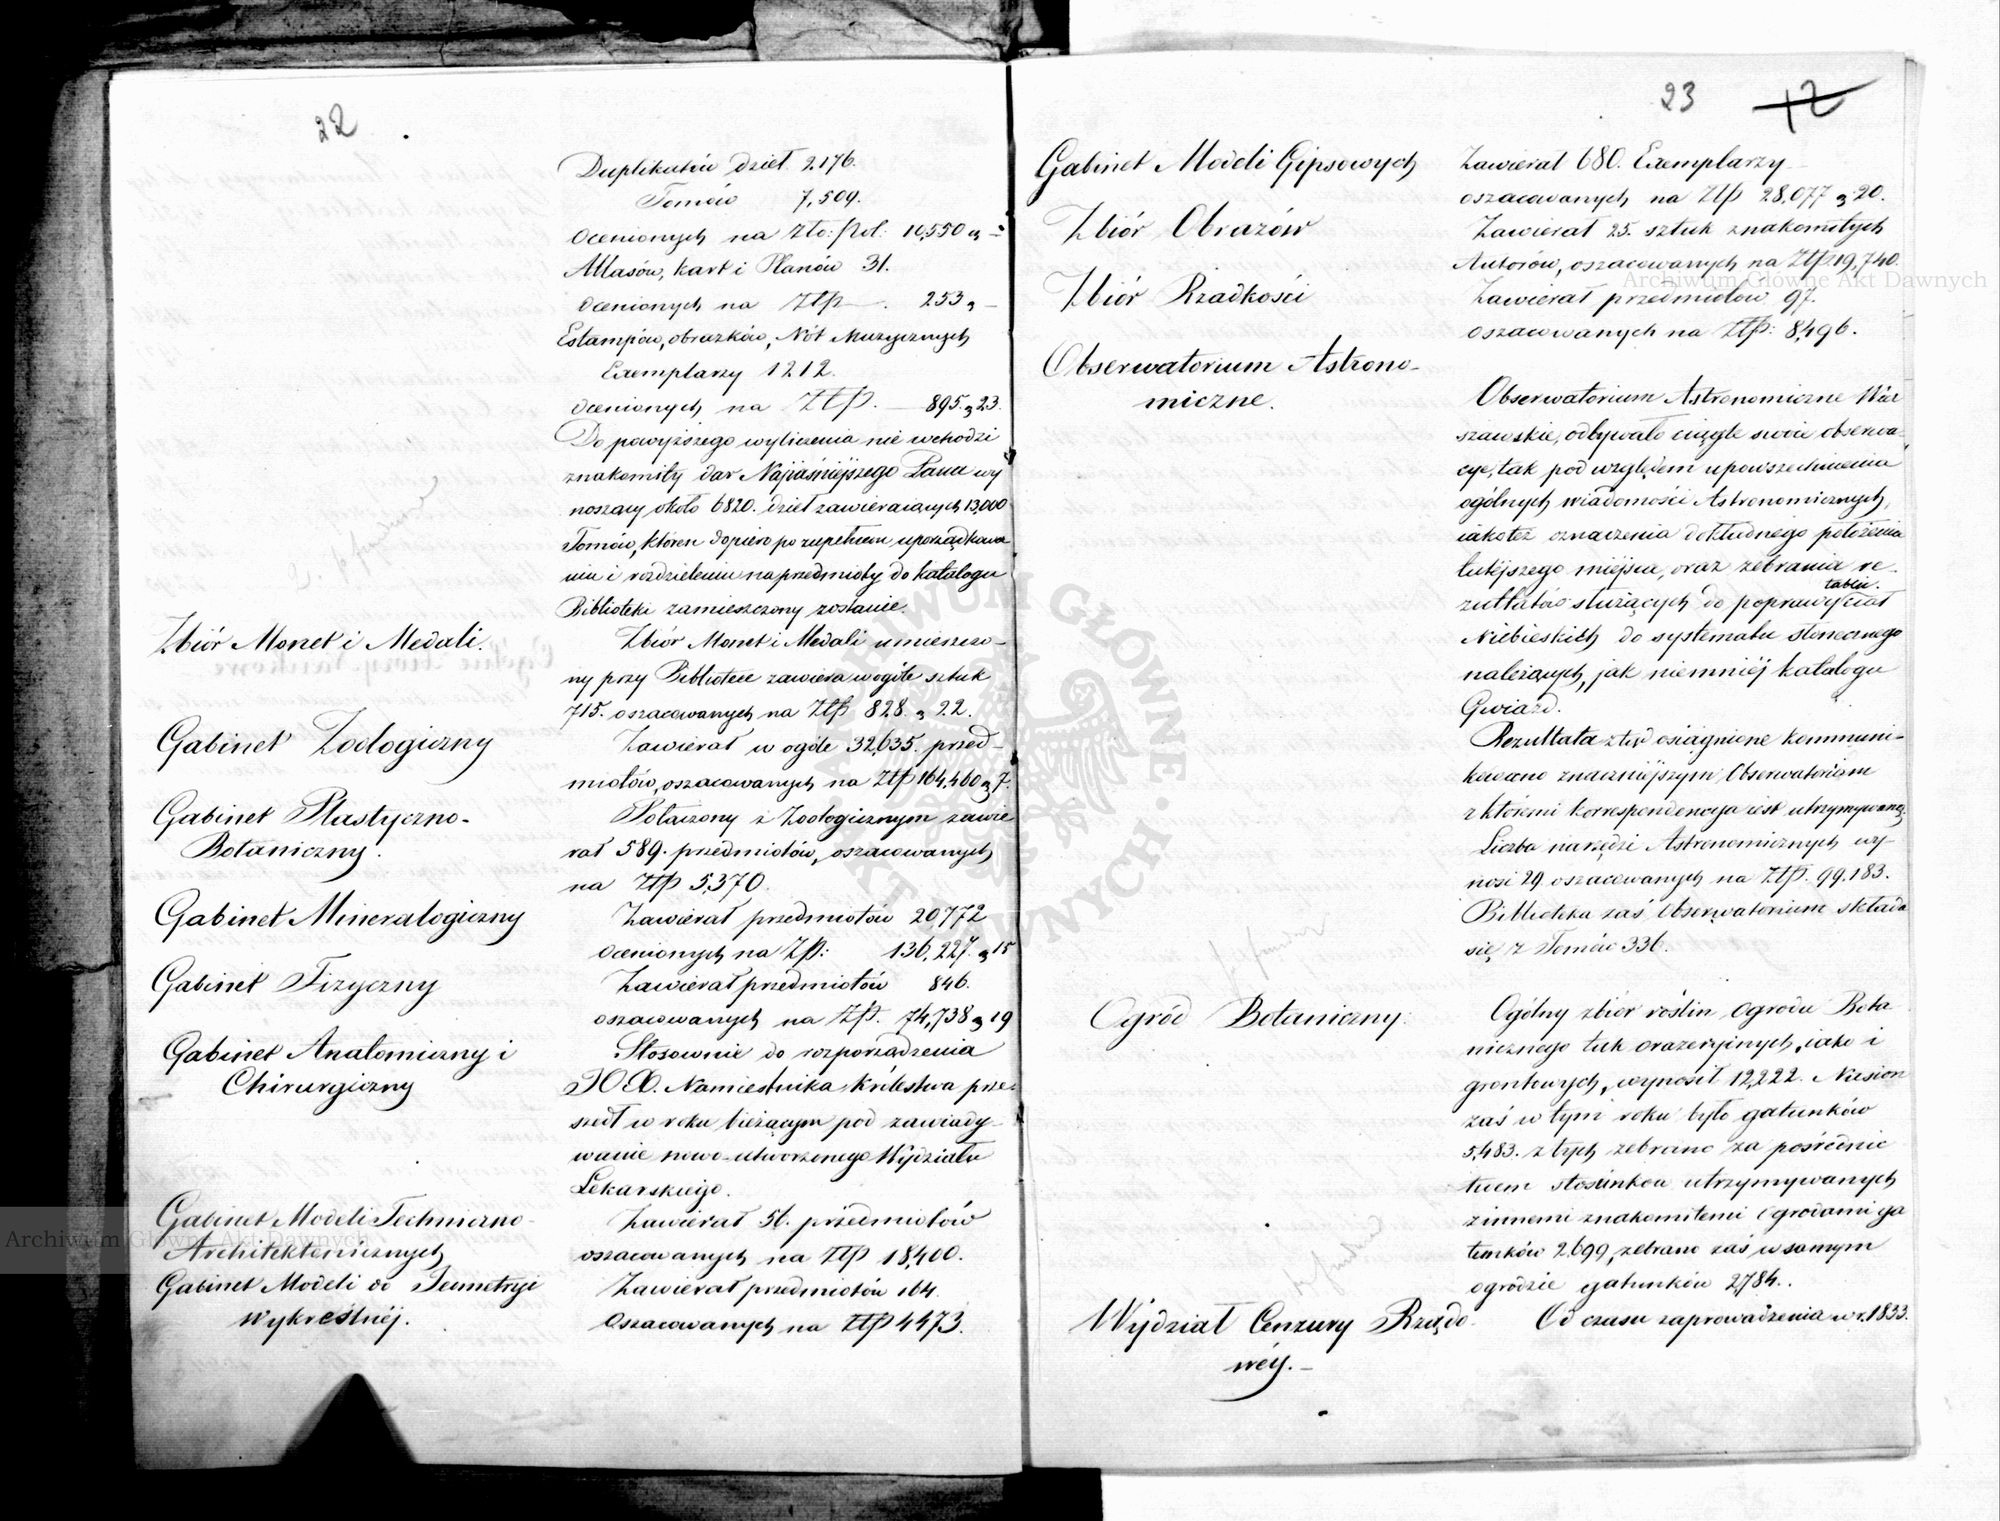 22
Duplikatów dzieł 2176.
Tomów 7,509.
Ocenionych na Zło: Pol: 10,550 g –
Atlasów, kart i Planów 31.
ocenionych na Złp. 253 g –
Estampów, obrazków, Nót Muzycznych
Exemplarzy 1212.
ocenionych na Złp. – 895 g 23.
Do powyższego wyliczenia nie wchodzi
znakomity dar Najiaśniejszego Pana wy
noszący około 6820. dzieł zawieraiących 13,000
Tomów, któren dopiero po zupełnem uporządkowa
niu i rozdzieleniu na przedmioty do katalogu
Biblioteki zamieszczony zostanie.
Zbiór Monet i Medali.
Zbiór Monet i Medali umieszczo-
ny przy Bibliotece zawiera wogóle sztuk
715. oszacowanych na Złp 828. g 22.
Gabinet Zoologiczny
Zawierał w ogóle 32,635. przed-
miotów, oszacowanych na Złp 164,460 g 7.
Gabinet Plastyczno-
Botaniczny.
Połączony z Zoologicznym zawie
rał 589. przedmiotów, oszacowanych
na Złp 5,370.
Gabinet Mineralogiczny
Zawierał przedmiotów 20,772
ocenionych na Złp: 136,227. g 15
Gabinet Fizyczny
Zawierał przedmiotów 846.
oszacowanych na Złp. 74,738 g 19
Gabinet Anatomiczny i
Chirurgiczny
Stosownie do rozporządzenia
JO X. Namiestnika Królestwa prze-
szedł w roku bieżącym pod zawiady-
wanie nowo-utworzonego Wydziału
Lekarskiego.
Gabinet Modeli Techniczno-
Architektonicznych
Zawierał 56. przedmiotów
oszacowanych na Złp 18,400.
Gabinet Modeli do Jeometryi
Wykreślnéj.
Zawierał przedmiotów 164.
Oszacowanych na Złp 4473.
23 12
Gabinet Modeli Gipsowych
Zawierał 680. Exemplarzy
oszacowanych na Złp 28,077 g 20.
Zbiór Obrazów
Zawierał 25. sztuk znakomitych
Autorów, oszacowanych na Złp 19,740.
Zbiór Rzadkości
Zawierał przedmiotów 97.
oszacowanych na Złp: 8,496.
Obserwatorium Astrono-
miczne.
Obserwatorium Astronomiczne War
szawskie, odbywało ciągle swoie obserwa-
cye, tak pod względem upowszechnienia
ogólnych wiadomości Astronomicznych,
iakoteż oznaczenia dokładnego położenia
tutéjszego miéjsca, oraz zebrania re-
tablic.
zultatów służących do poprawy ciał
Niebieskich do systematu słonecznego
należących, jak niemniéj katalogu
Gwiazd.
Rezultata ztąd osiągnione kommuni-
kowano znaczniejszym Obserwatoriom
z któremi korrespondencya iest utrzymywaną.
Liczba narzędzi Astronomicznych wy-
nosi 29. oszacowanych na Złp. 99.183.
Biblioteka zaś Obserwatorium składa
się z Tomów 336.
Ogród Botaniczny:
Ogólny zbiór roślin Ogrodu Bota
nicznego tak oranżeryinych, iako i
grontowych, wynosił 12,222. Nasion
zaś w tym roku było gatunków
5,483. z tych zebrano za pośrednic
twem stosunków utrzymywanych
z innemi znakomitemi Ogrodami ga
tunków 2,699, zebrano zaś w samym
ogrodzie gatunków 2,784.
Wydział Cenzury Rządo-
wéy.–
Od czasu zaprowadzenia w r. 1833.
Archiwum Główne Akt Dawnych
Archiwum Główne Akt Dawnych
ARCHIWUM GŁÓWNE AKT DAWNYCH